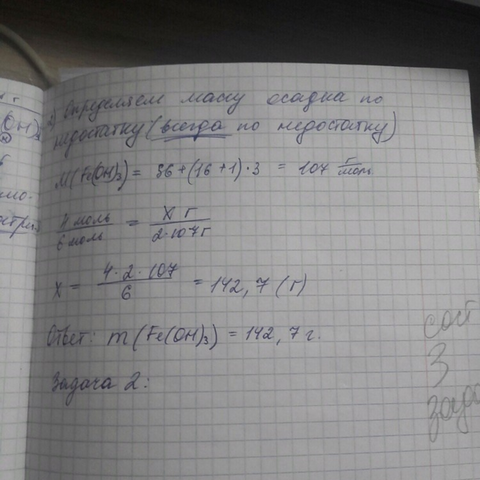 Определяем массу осадка по
недостатку (всегда по недостатку)
M(Fe(OH)₃) = 56+(16+1)·3 = 107 г/моль
4 моль / 6 моль = X г / 2·107г
X = 4·2·107 / 6 = 142,7 (г)
Ответ: m(Fe(OH)₃) = 142,7 г.
Задача 2:
сост
3
зада